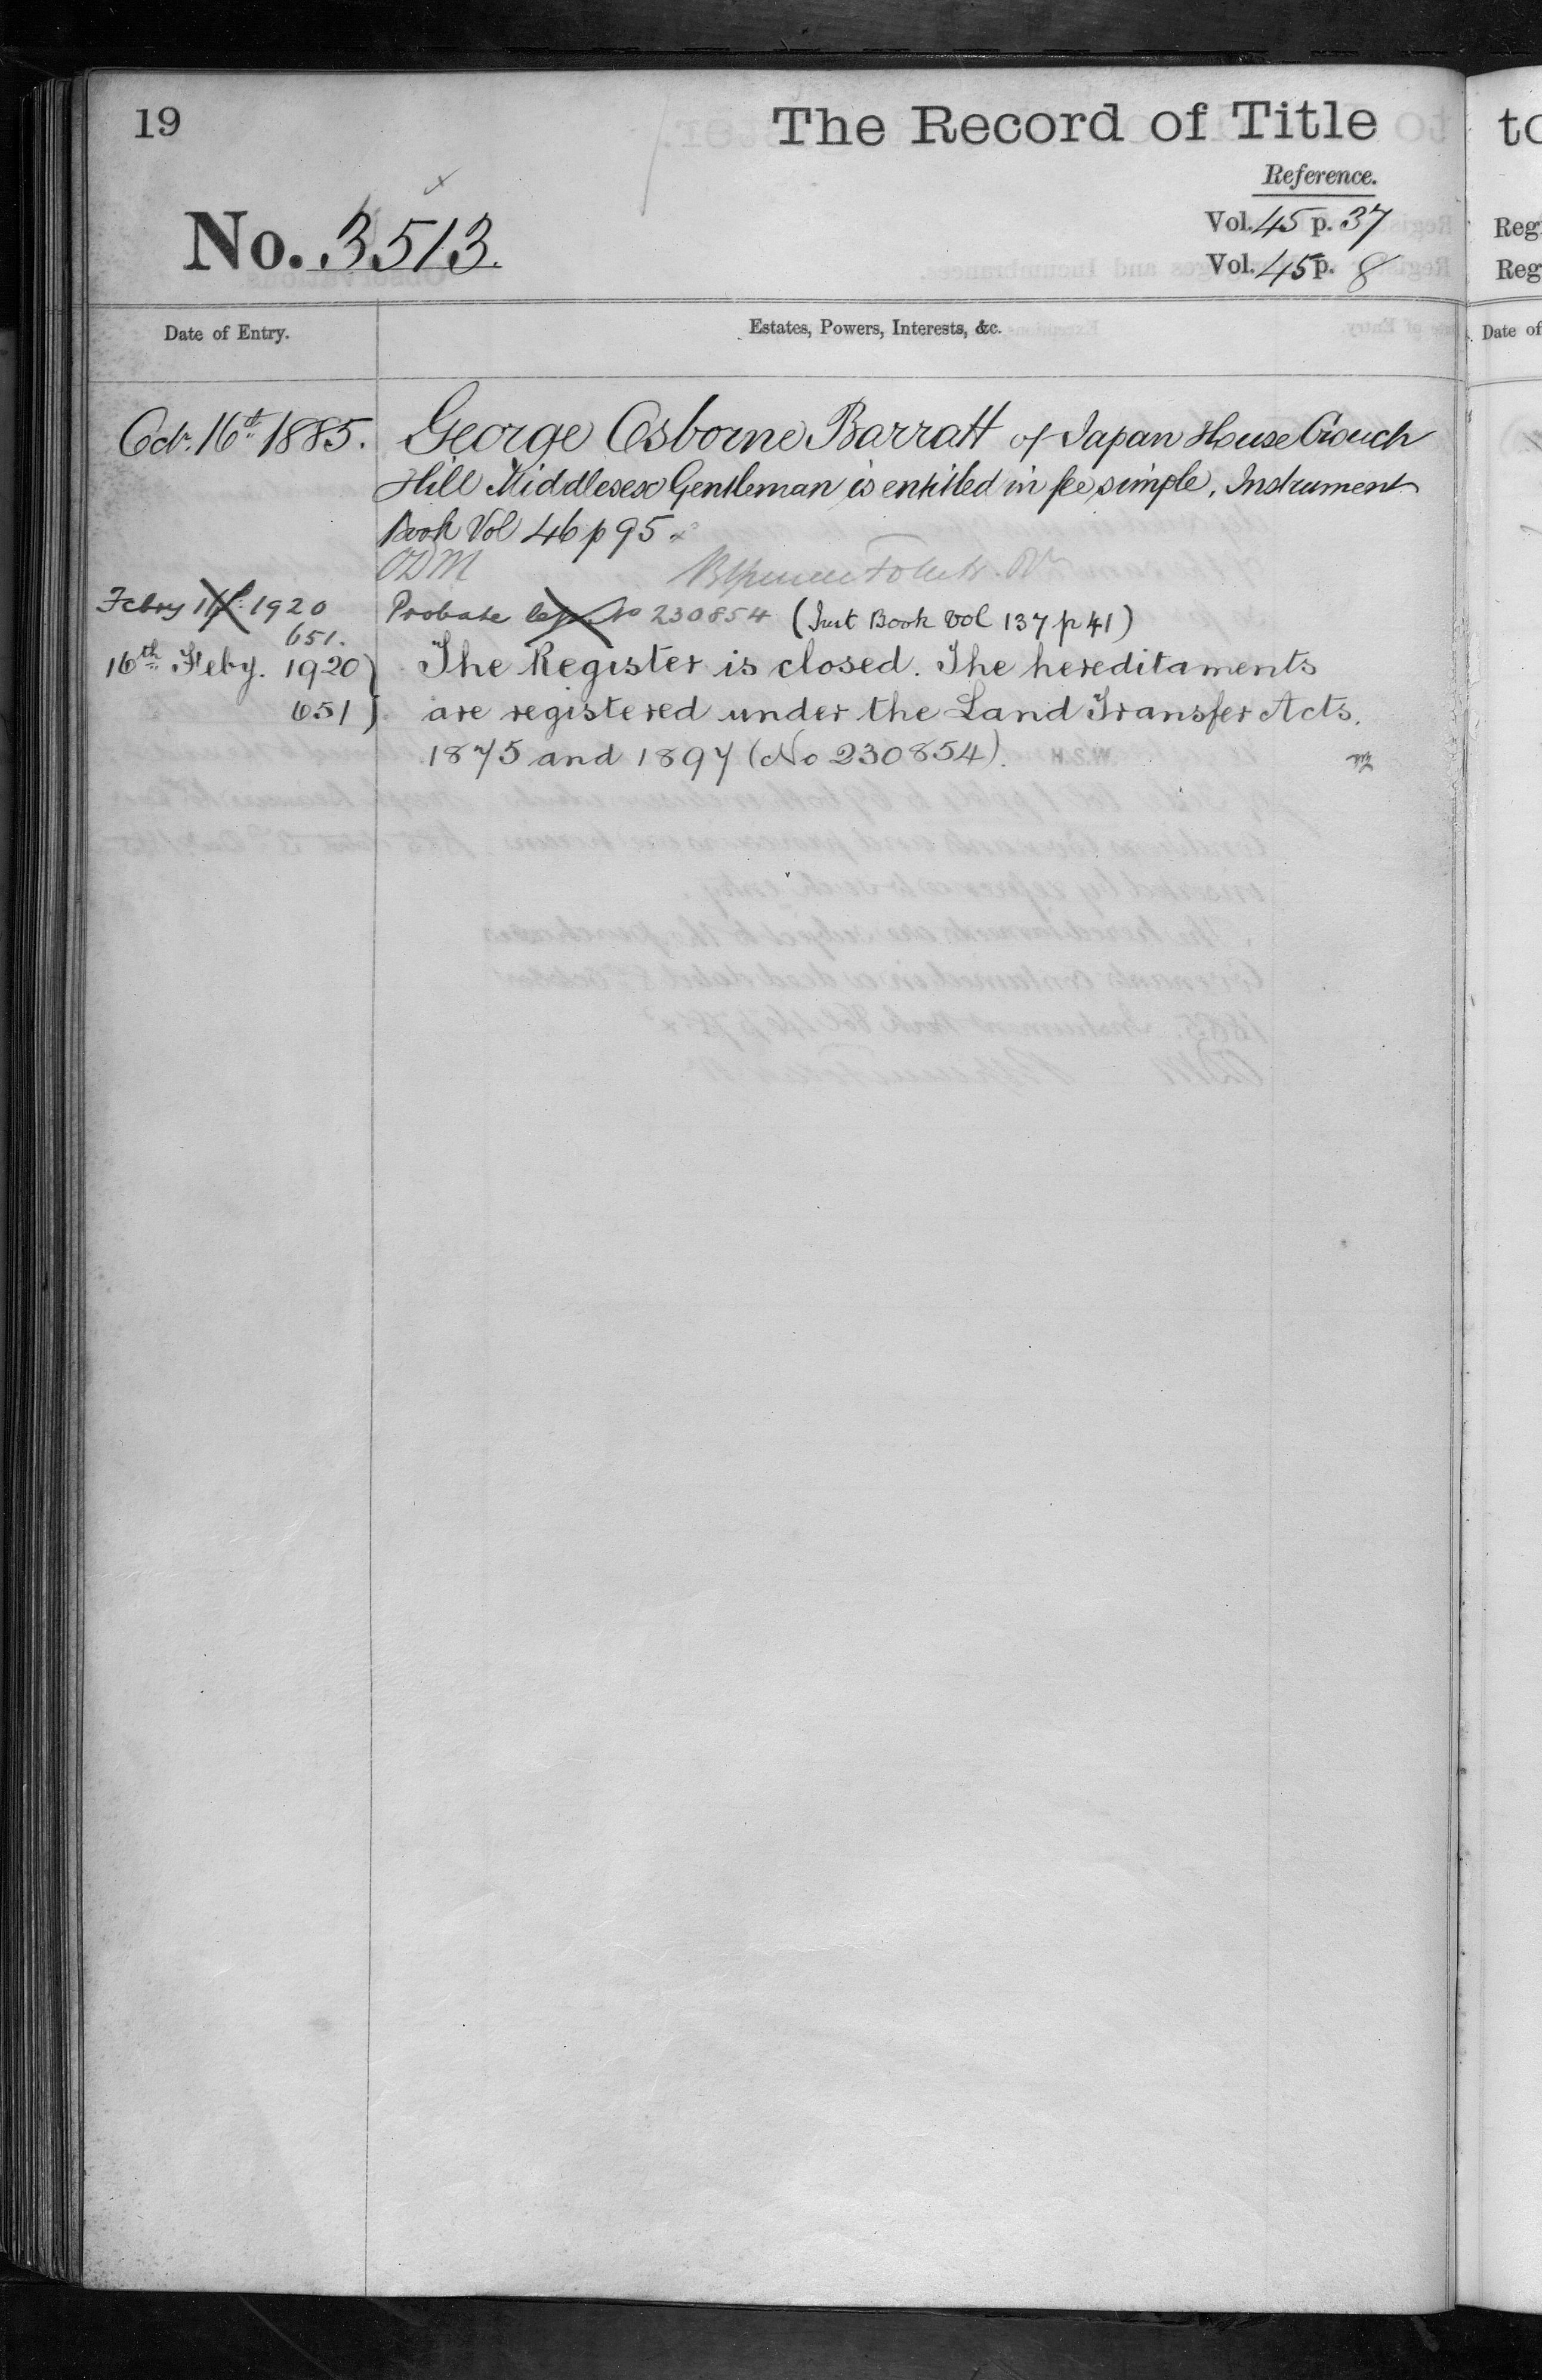 19
The Record of Title
Reference.
No. 3513.
Vol. 45 p. 37
Vol. 45 p. 8
Date of Entry.
Estates, Powers, Interests, &c.
Oct. 16th 1885.
George Osborne Barratt of Japan House Crouch
Hill Middlesex Gentleman is entitled in fee simple. Instrument
Book Vol 46 p 95
Febry 1920
651.
Probate No 230854 (Inst Book Vol 137 p 41)
16th Feby. 1920)
651)
The Register is closed. The hereditaments
are registered under the Land Transfer Acts,
1875 and 1897 (No 230854).
to
Reg
Reg
Date of